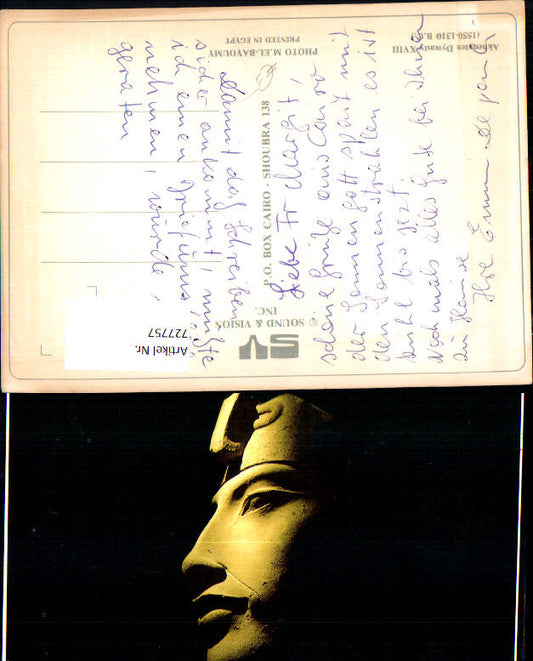 Akhenaten Dynasty XVIII
(1550-1310 B.C.)
PHOTO M.EL-BAYOUMY
PRINTED IN EGYPT
P.O. BOX CAIRO - SHOUBRA 138
© SOUND & VISION
INC.
SV
Artikel Nr.
727757
Damit das Schreiben
sicher ankommt, mußte
ich einen Briefumschlag
nehmen, wurde
geraten
Liebe Fr Margit,
schöne Grüße aus Cairo
der Sonnengott spart mit
den Sonnenstrahlen es ist
kühl bis jetzt
Nochmals alles Gute bei Ihnen
zu Hause
Ihre